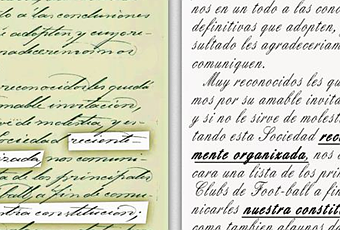 á las conclusiones
adopten, y cuyo re-
agradeceriamos nos
reconocidos les queda
amable invitacion,
de molestia, y es-
Sociedad reciente-
izada, nos comuni-
ta de los principales
ball, a fin de comu-
stra constitucion,
nos en un todo a las conc
definitivas que adopten,
sultado les agradeceriam
comuniquen.
Muy reconocidos les qu
mos por su amable invita
y si no le sirve de molest
tando esta Sociedad rec
mente organizada, nos
cara una lista de los pri
Clubs de Foot-ball a fin
nicarles nuestra constit
como tambien algunos de